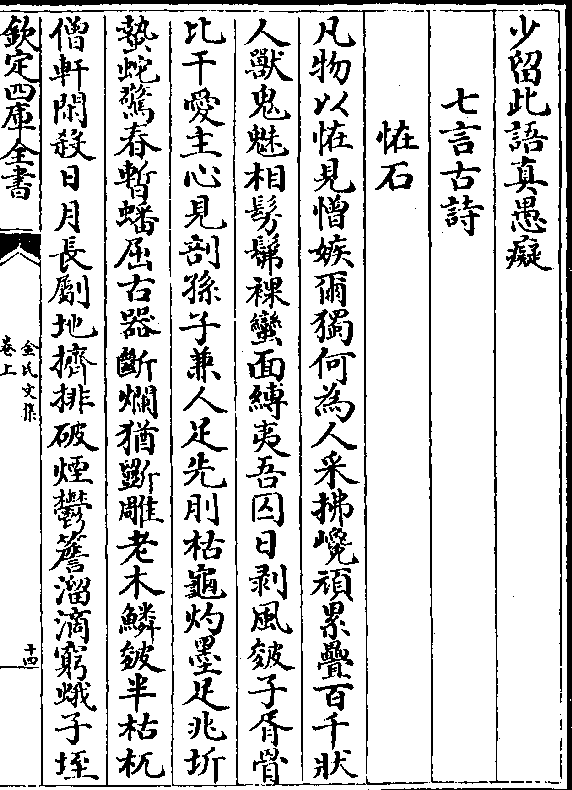 少留此語真愚癡
七言古詩
恠石
凡物以恠見憎嫉爾獨何為人采拂巉頑累疊百千狀
人獸鬼魅相髣髴裸蠻面縛夷吾囚日剥風皴子胥骨
比干愛主心見剖孫子兼人足先刖枯龜灼墨足兆坼
蟄蛇驚春暫蟠屈古器斷爛猶斵雕老木鱗皴半枯杌
僧軒閑殺日月長劚地擠排破煙鬱簷溜滴窮蛾子垤
欽定四庫全書
金氏文集
卷上
十四